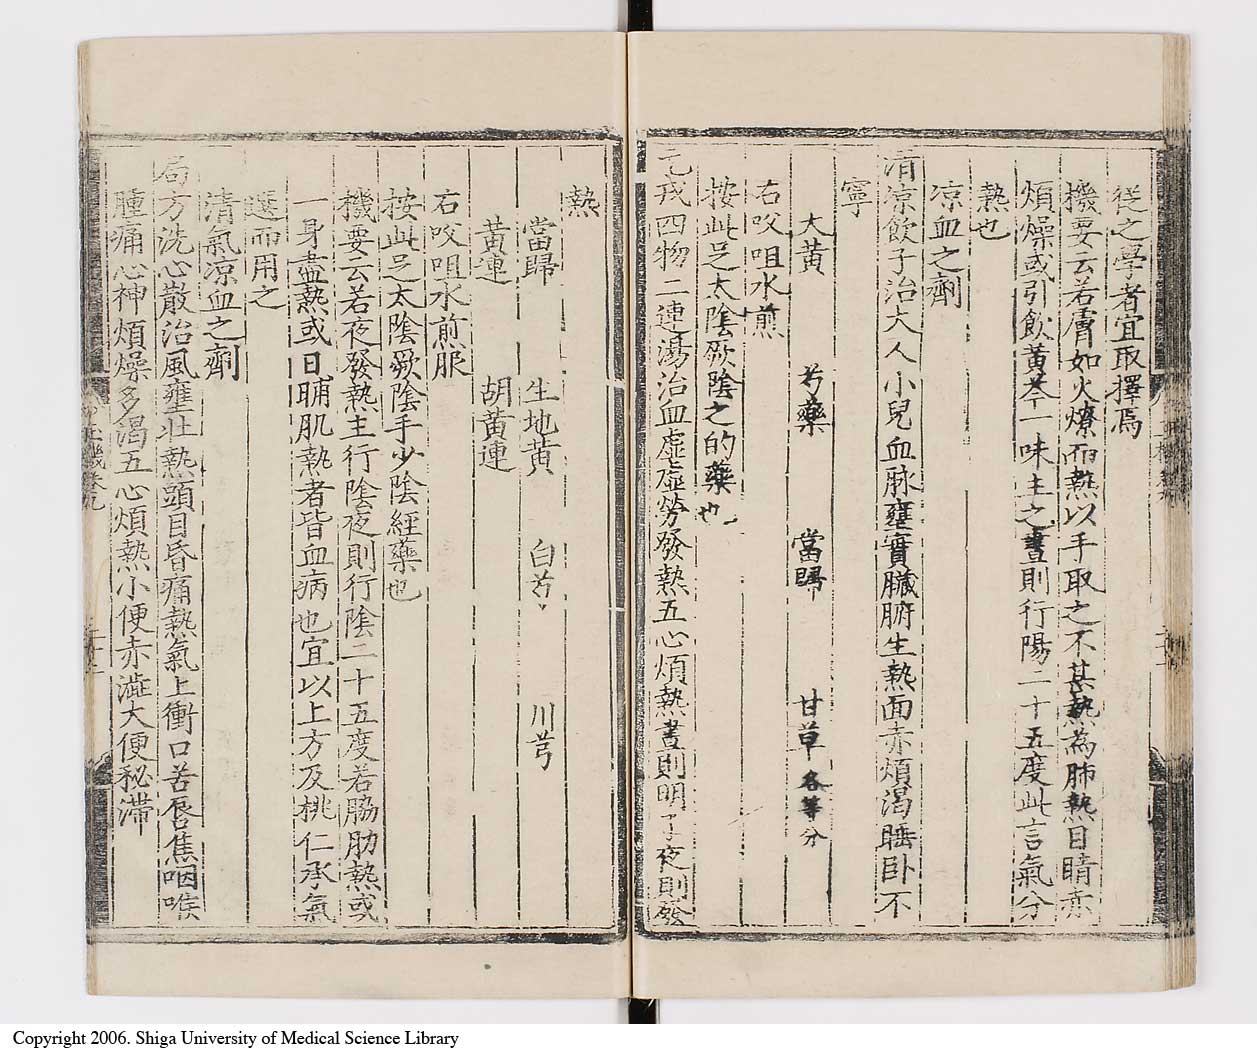 從之學者宜取擇焉
機要云若膚如火燎而熱以手取之不甚熱為肺熱目睛赤
煩燥或引飲黃芩一味主之晝則行陽二十五度此言氣分
熱也
凉血之劑
清凉飲子治大人小兒血脉壅實臟腑生熱面赤煩渴睡卧不
寧
大黃 芍藥 當歸 甘草各等分
右㕮咀水煎
按此足太陰厥陰之的藥也
元戎四物二連湯治血虛虛勞發熱五心煩熱晝則明了夜則發
熱
當歸 生地黃 白芍 川芎
黃連 胡黃連
右㕮咀水煎服
按此足太陰厥陰手少陰經藥也
機要云若夜發熱主行陰夜則行陰二十五度若脇肋熱或
一身盡熱或日晡肌熱者皆血病也宜以上方及桃仁承氣
選而用之
清氣凉血之劑
局方洗心散治風壅壯熱頭目昏痛熱氣上衝口苦唇焦咽喉
腫痛心神煩燥多渴五心煩熱小便赤澁大便秘滯
Copyright 2006. Shiga University of Medical Science Library